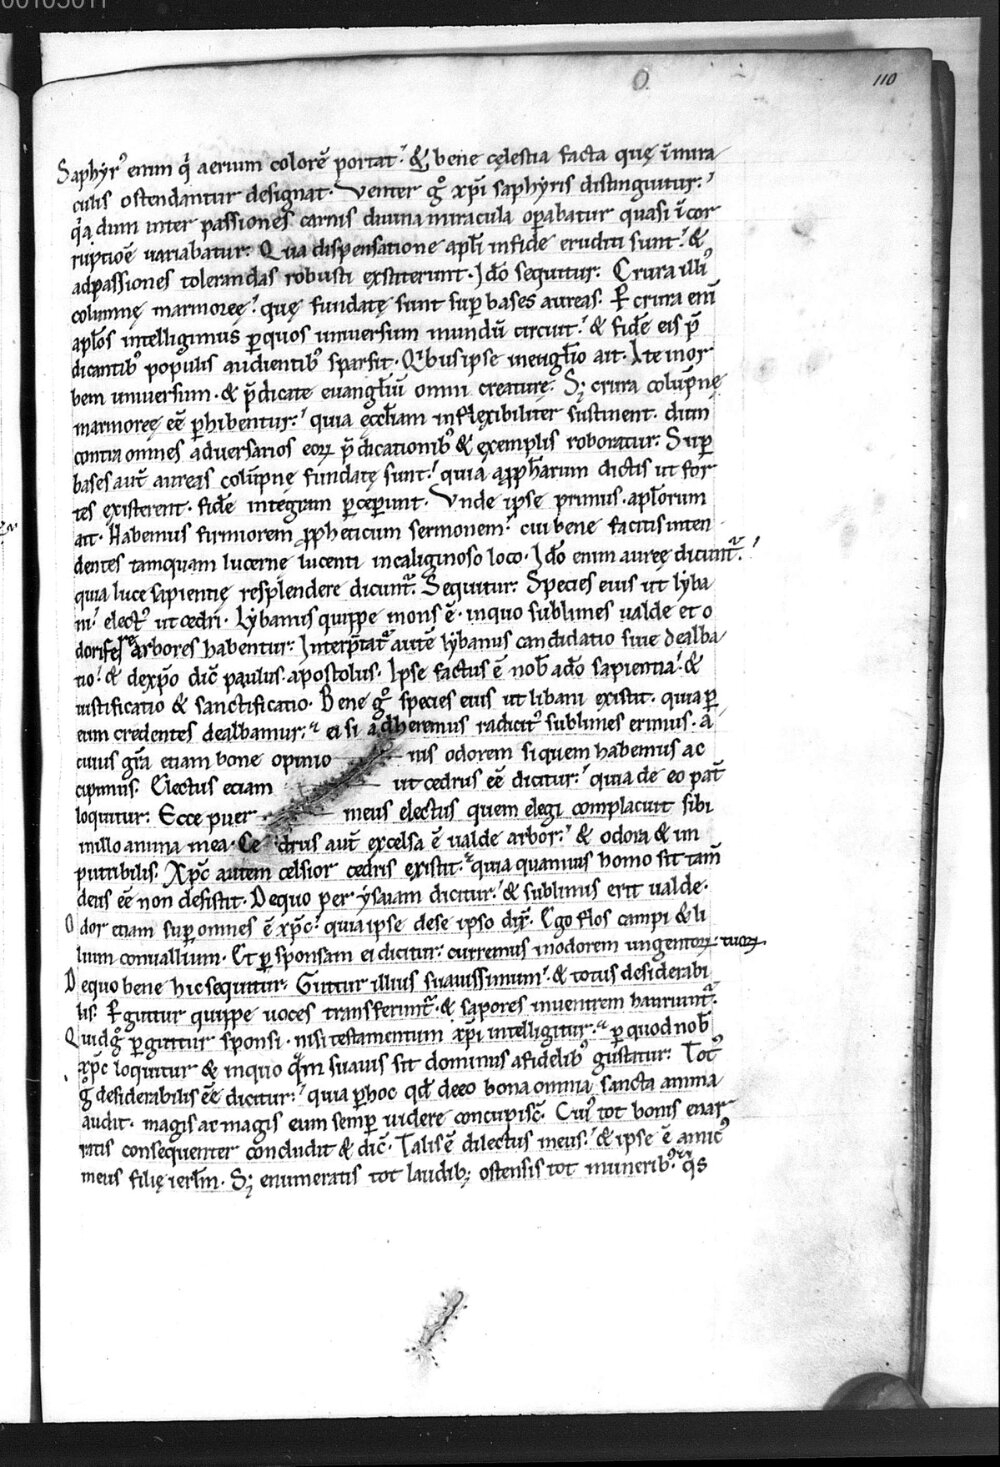 110
Saphyr᾽ enim q̇ aerium colorē portat. & bene cęlestia facta quę ī mira
culis ostendantur designat. Venter g° xp̄i saphyris distinguitur:
q̇a dum inter passiones carnis diuina miracula oꝑabatur quasi ī cor
ruptiōe uariabatur. Qua dispensatione apl̄i in fide eruditi sunt. &
ad passiones tolerandas robusti exstiterunt. Idō sequitur. Crura illi᾽
columnę marmoreę. quę fundatę sunt sup̄ bases aureas. Ꝑ crura eni᷒
apl̄os intelligimus ꝑ quos uniuersum mundū circuit. & fidē eis p̄
dicantib᾽ populis audientib᾽ sparsit. Q᾽bus ipse in eūgl̄io ait. Ite in or
bem uniuersum. & p̄dicate euangl̄iū omni creaturę. Sꝫ crura colūpnę
marmoreę eē ꝑhibentur. quia eccl̄iam inflęxibiliter sustinent. dum
contra omnes aduersarios eoꝝ p̄dicationib᾽ & exemplis roboratur. Sup̄
bases aut̄ aureas colūpnę fundatę sunt. quia ꝓph̄arum dictis ut for
tes existerent. fidē integram ꝑceperunt. Vnde ipse primus apl̄orum
ait. Habemus firmiorem ꝓpheticum sermonem. cui bene facitis inten
dentes tamquam lucerne lucenti in caliginoso loco. Idō enim aureę dicunt᷑.
quia luce sapientię resplendere dicunt᷑. Sequitur. Species eius ut lyba
ni. elect᾽ ut cedri. Lybanus quippe mons ē. in quo sublimes ualde et o
doriferę arbores habentur. Interp̄tat᷑ autē lybanus candidatio siue dealba
tio. & de xp̄o dic̄ paulus apostolus. Ipse factus ē nob̄ a dō sapientia. &
iustificatio & sanctificatio. Bene g° species eius ut libani existit. quia ꝑ
eum credentes dealbamur. & ei si adheremus radicit᾽ sublimes erimus. A
cuius gr̄a etiam bone opinio nis odorem si quem habemus ac
cipimus. Electus etiam ut cedrus eē dicitur. quia de eo pat̄
loquitur. Ecce puer meus electus quem elegi complacuit sibi
in illo anima mea. Ce drus aut̄ excelsa ē ualde arbor. & odora & im
putribilis. Xp̄c autem celsior cedris existit. quia quamuis homo sit tam̄
deus eē non desistit. De quo per ysaiam dicitur. & sublimis erit ualde.
Odor etiam sup̄ omnes ē xp̄c. quia ipse de se ipso dix̄. Ego flos campi & li
lium conuallium. Et ꝑ sponsam ei dicitur. curremus in odorem ungentoꝝ tuoꝝ.
De quo bene hic sequitur. Guttur illius suauissimum. & totus desiderabi
lis. Ꝑ guttur quippe uoces transferunt᷑. & sapores in uentrem hauriunt᷑.
Quid g° ꝑ guttur sponsi. nisi testamentum xp̄i intelligitur. ꝑ quod nob̄
xp̄c loquitur & in quo q̄m suauis sit dominus a fidelib᾽ gustatur. Tot᾽
g° desiderabilis eē dicitur. quia ꝑ hoc qd̄ de eo bona omnia sancta anima
audit. magis ac magis eum semꝑ uidere concupisc̄. Cui᾽ tot bonis enar
ratis consequenter concludit & dic̄. Talis ē dilectus meus. & ipse ē amic᾽
meus filię ierl̄m. Sꝫ enumeratis tot laudibꝫ ostensis tot munerib᾽. q̇s